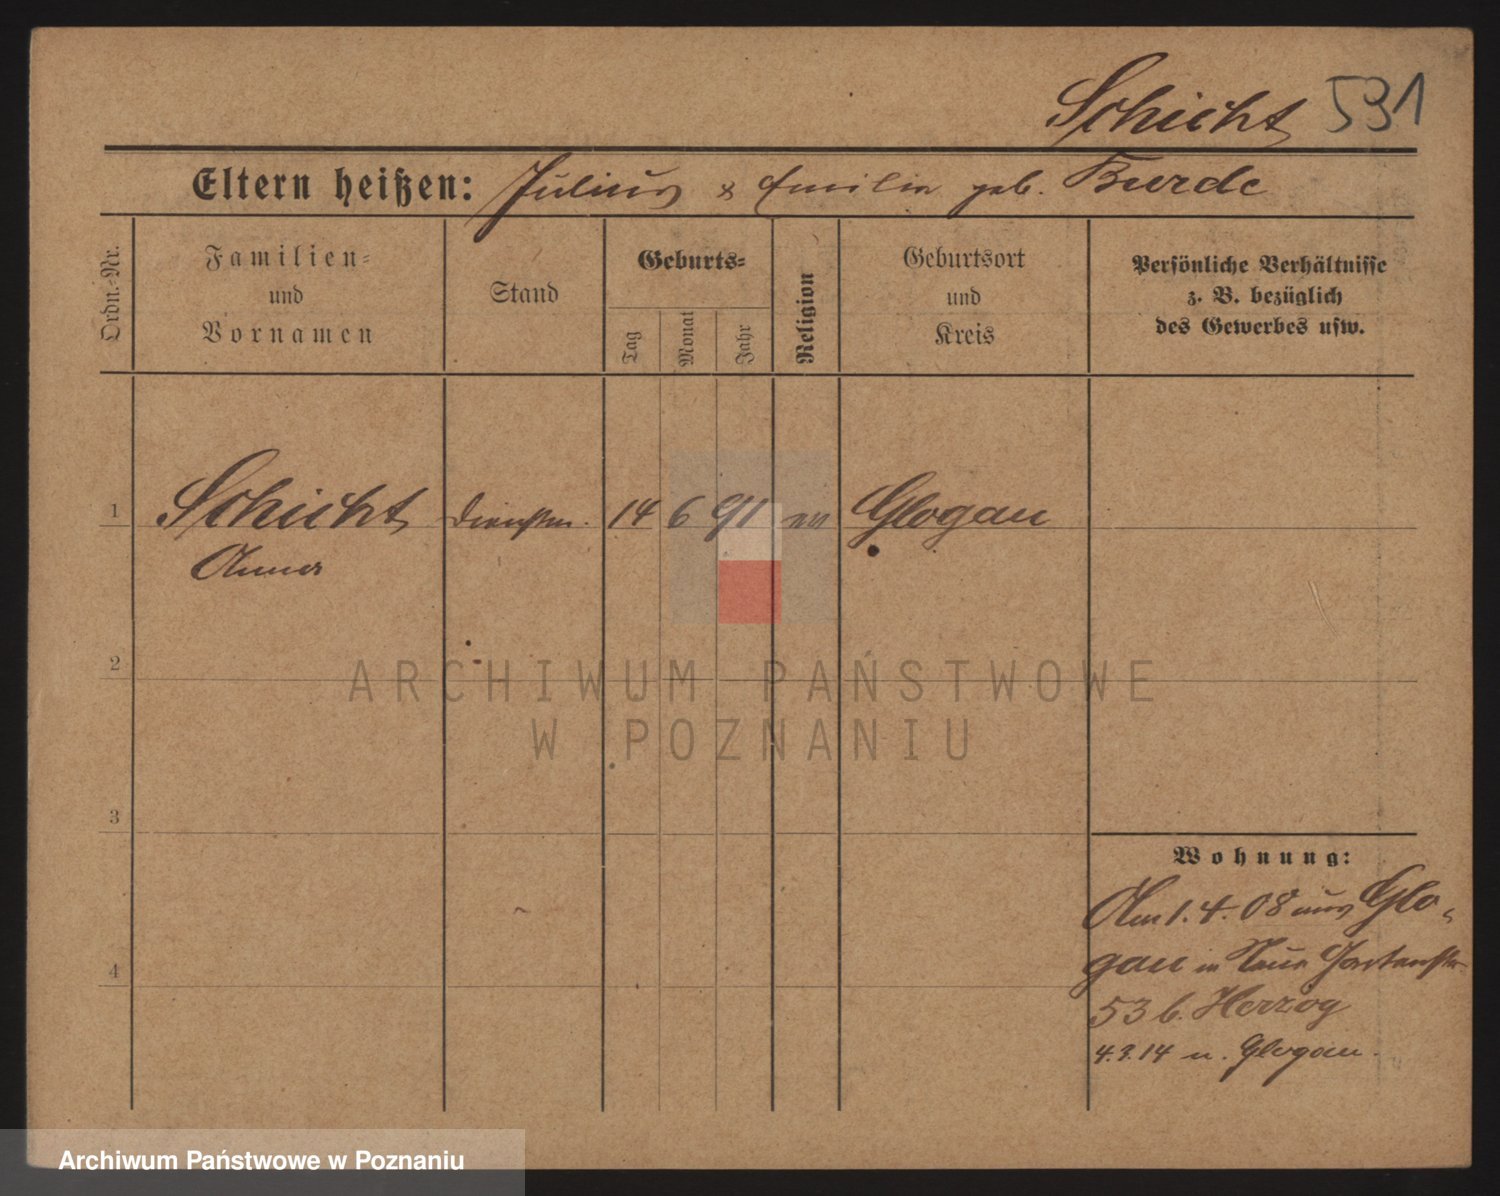 Schicht 531
Eltern heißen: Julius & Emilie geb. Burde
Ordn.-Nr.
Familien-
und
Vornamen
Stand
Geburts-
Tag
Monat
Jahr
Religion
Geburtsort
und
Kreis
Persönliche Verhältnisse
z. B. bezüglich
des Gewerbes usw.
1 Schicht Dienstm. 14 6 91 ev Glogau
Anna
2
3
4
Wohnung:
Am 1.4.08 aus Glo-
gau in Neue Gartenstr.
53 b. Herzog
4.3.14 n. Glogau.
ARCHIWUM PAŃSTWOWE
W POZNANIU
Archiwum Państwowe w Poznaniu